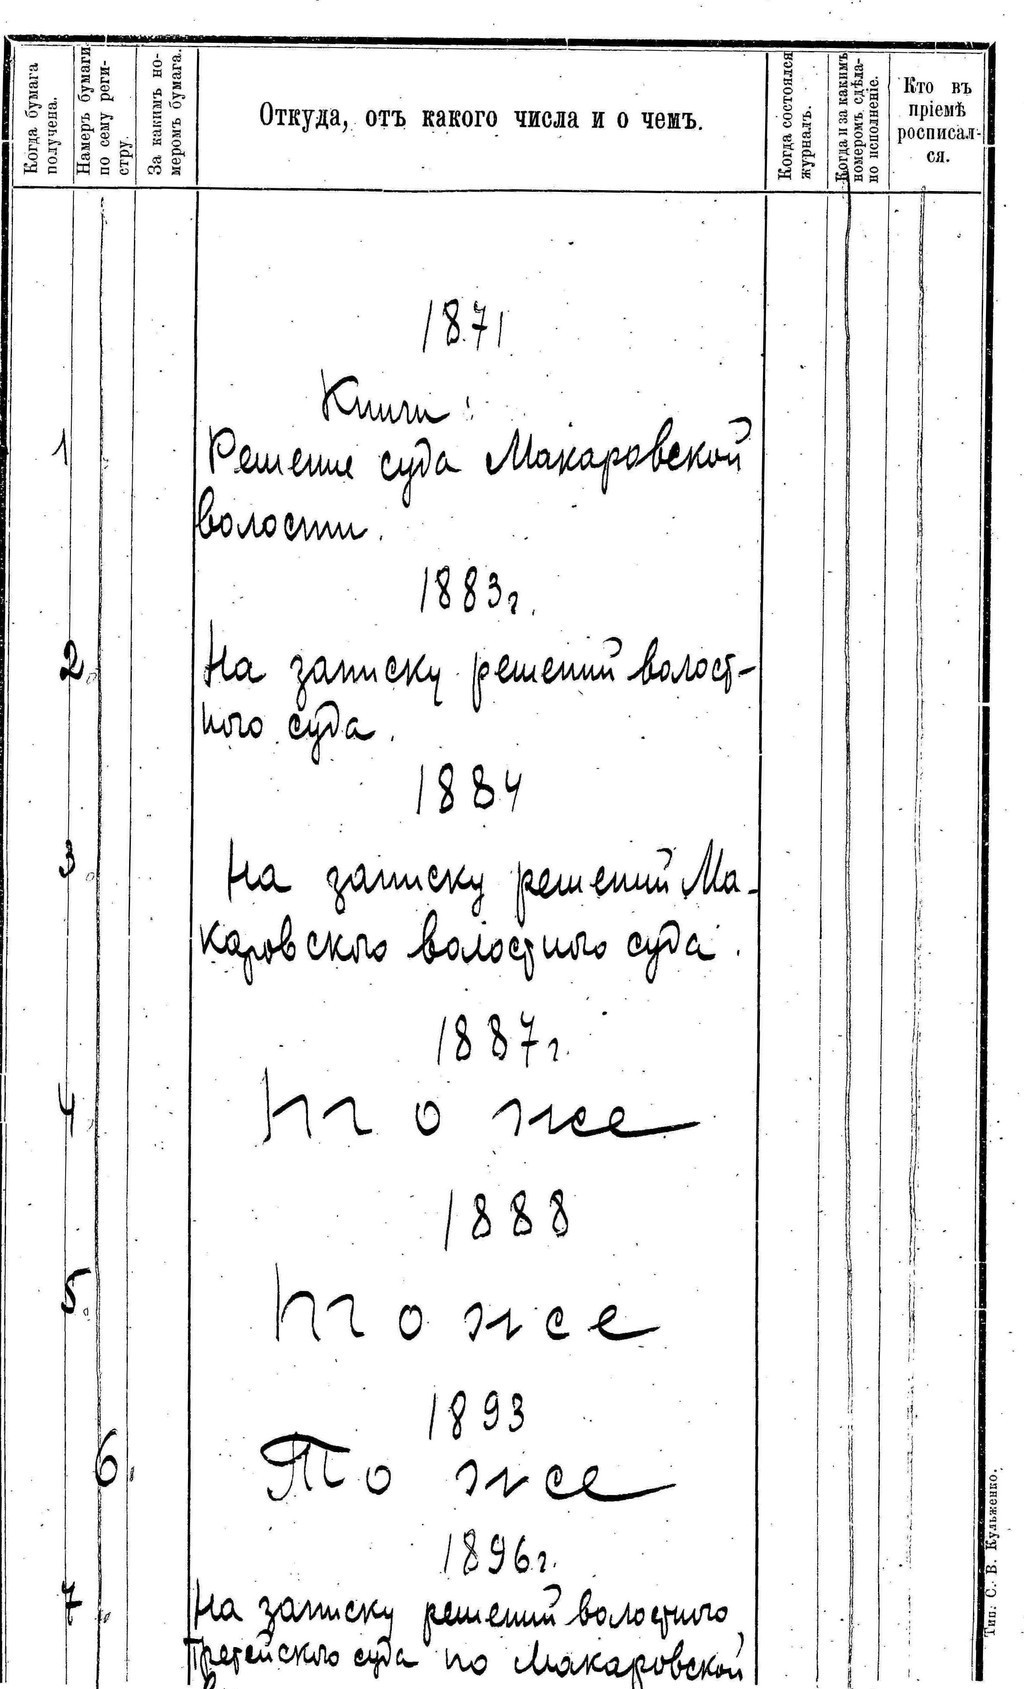 Когда бумага получена.
Намеръ бумаги по сему реги-стру.
За какимъ но-меромъ бумага.
Откуда, отъ какого числа и о чемъ.
Когда состоялся журналъ.
Когда и за какимъ номеромъ сдѣла-но исполненіе.
Кто въ
пріемѣ
росписал-
ся.
1871
Книги:
1 Решение суда Макаровской
волости.
1883г.
2. На записку решений волост-
ного суда.
1884
3. На записку решений Ма-
каровского волостного суда.
1887г.
4. то же
1888
5. то же
1893
6. То же
1896г.
7. На записку решений волостного,
Третейского суда по Макаровской
Тип. С. В. Кульженко.